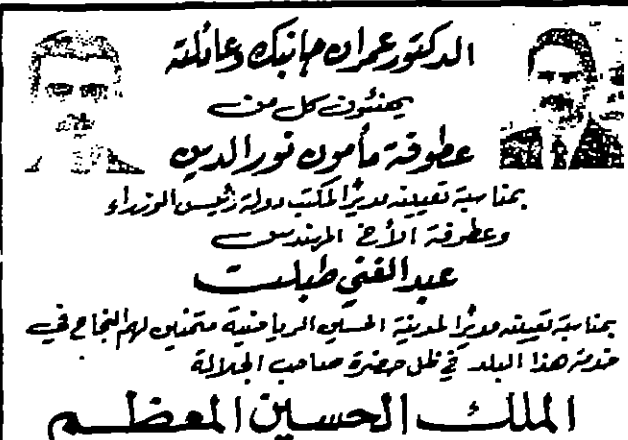 الدكتور عمران جانبك وعائلته
يهنئون كل من
عطوفة مأمون نور الدين
بمناسبة تعيينه مديرًا لمكتب دولة رئيس الوزراء
وعطوفة الأخ المهندس
عبد الغني طبلت
بمناسبة تعيينه مديرًا لمدينة الحسين الرياضية متمنين لهم النجاح في
خدمة هذا البلد في ظل حضرة صاحب الجلالة
الملك الحسين المعظم